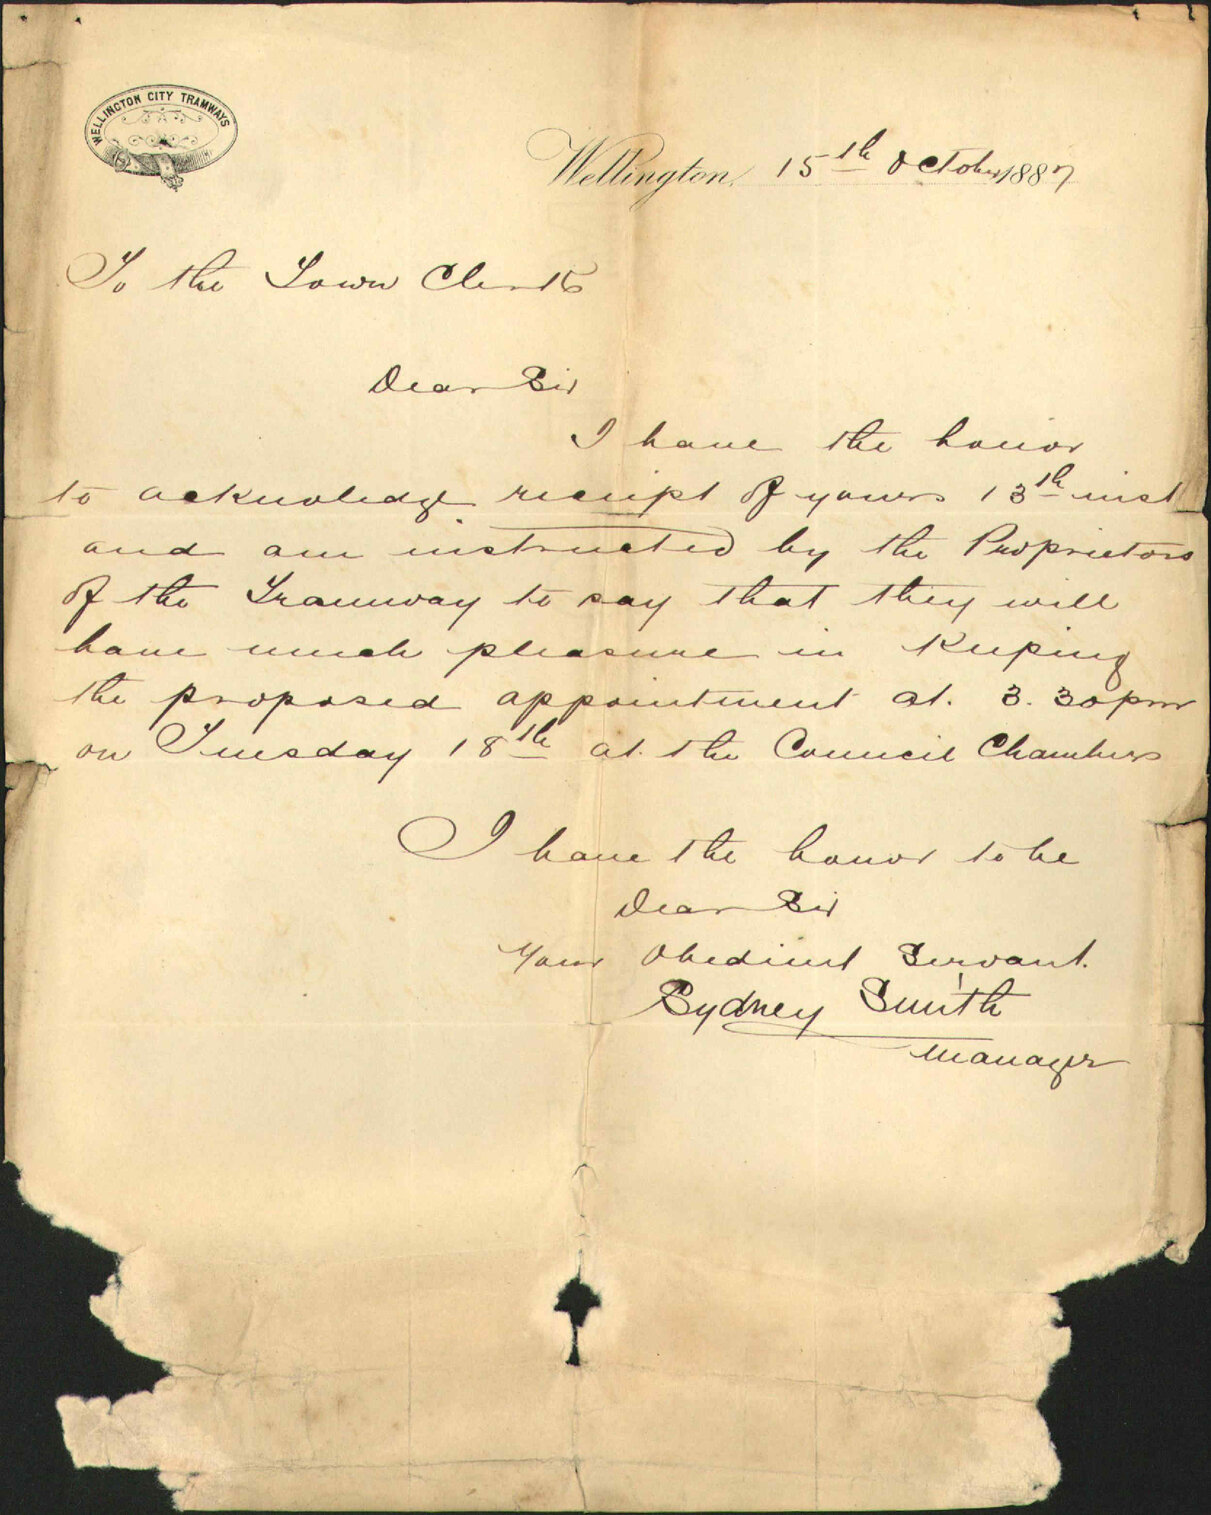 WELLINGTON CITY TRAMWAYS
Wellington, 15th October 1887
To the Town Clerk
Dear Sir
I have the honor
to acknowledge receipt of yours 13th inst
and am instructed by the Proprietors
of the Tramway to say that they will
have much pleasure in Keeping
the proposed appointment at. 3.30pm
on Tuesday 18th at the Council Chambers
I have the honor to be
Dear Sir
Your Obedient Servant.
Sydney Smith
Manager